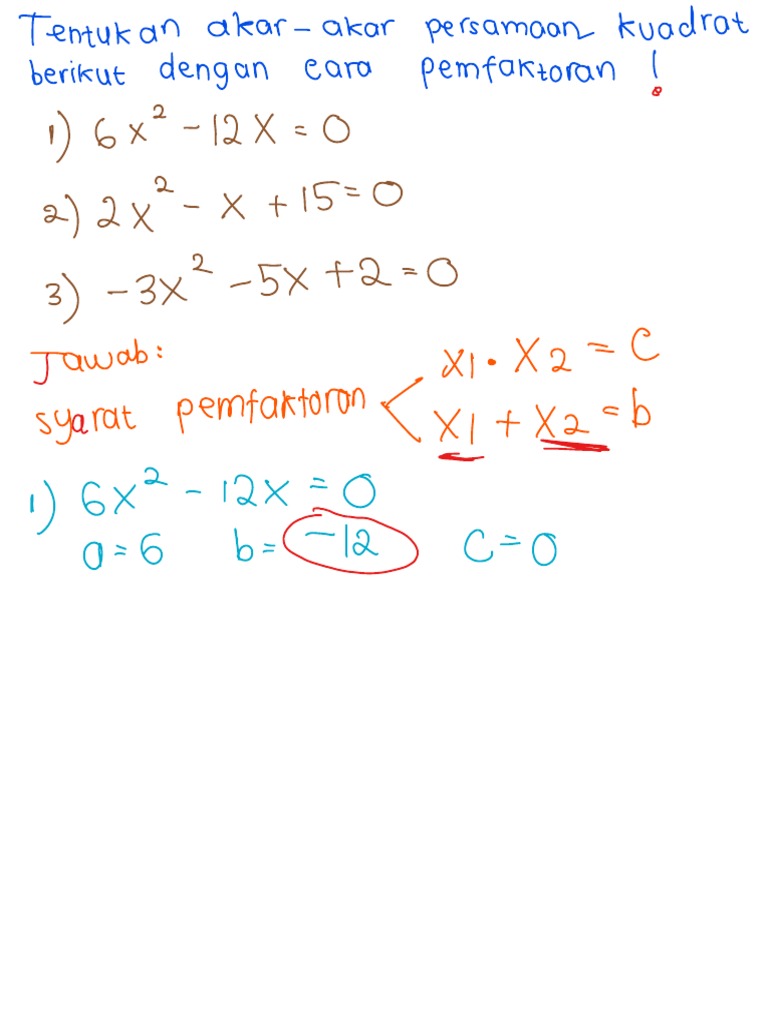 Tentukan akar-akar persamaan kuadrat
berikut dengan cara pemfaktoran !
1) 6x² - 12x = 0
2) 2x² - x + 15 = 0
3) -3x² - 5x + 2 = 0
Jawab:
syarat pemfaktoran < x1 · x2 = c
x1 + x2 = b
1) 6x² - 12x = 0
a = 6 b = -12 c = 0